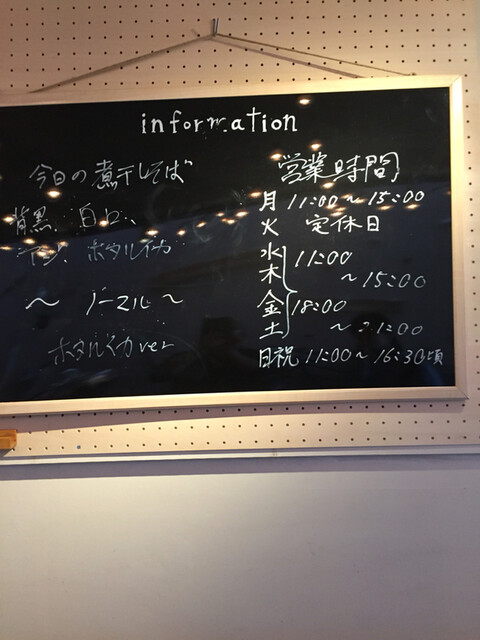 information
今日の煮干しそば
背黒、白口、
アジ、ホタルイカ
～ ノーマル ～
ホタルイカver
営業時間
月 11:00～15:00
火 定休日
水 11:00
木 ～15:00
金 18:00
土 ～21:00
日祝 11:00～16:30頃